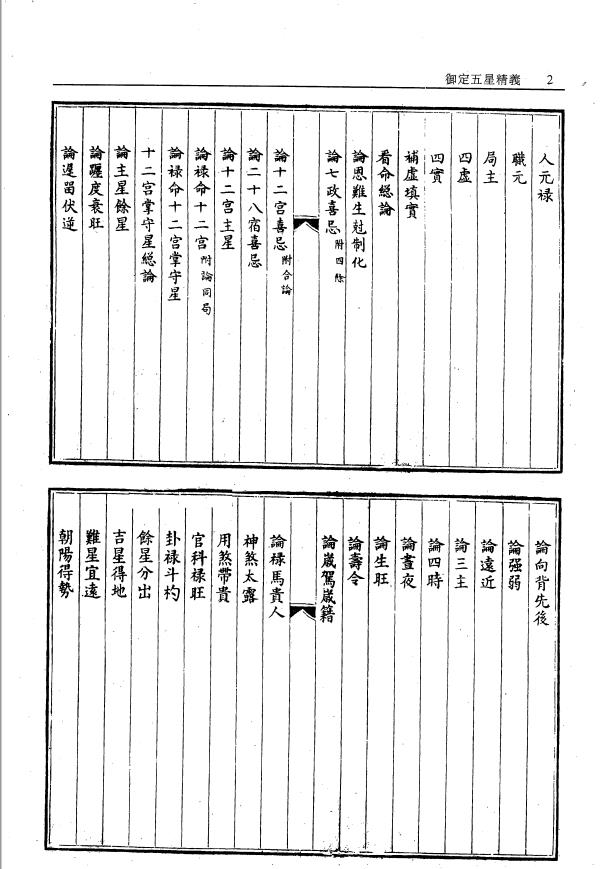 御定五星精義 2
人元禄
職元
局主
四虚
四實
補虚填實
看命總論
論恩難生尅制化
論七政喜忌附四餘
論十二宮喜忌附合論
論二十八宿喜忌
論十二宮主星
論祿命十二宮附論同局
論祿命十二宮掌守星
十二宮掌守星總論
論主星餘星
論躔度衰旺
論遲留伏逆
論向背先後
論强弱
論遠近
論三主
論四時
論晝夜
論生旺
論壽令
論嵗駕嵗籍
論禄馬貴人
神煞太露
用煞帶貴
官科祿旺
卦禄斗杓
餘星分出
吉星得地
難星宜遠
朝陽得勢